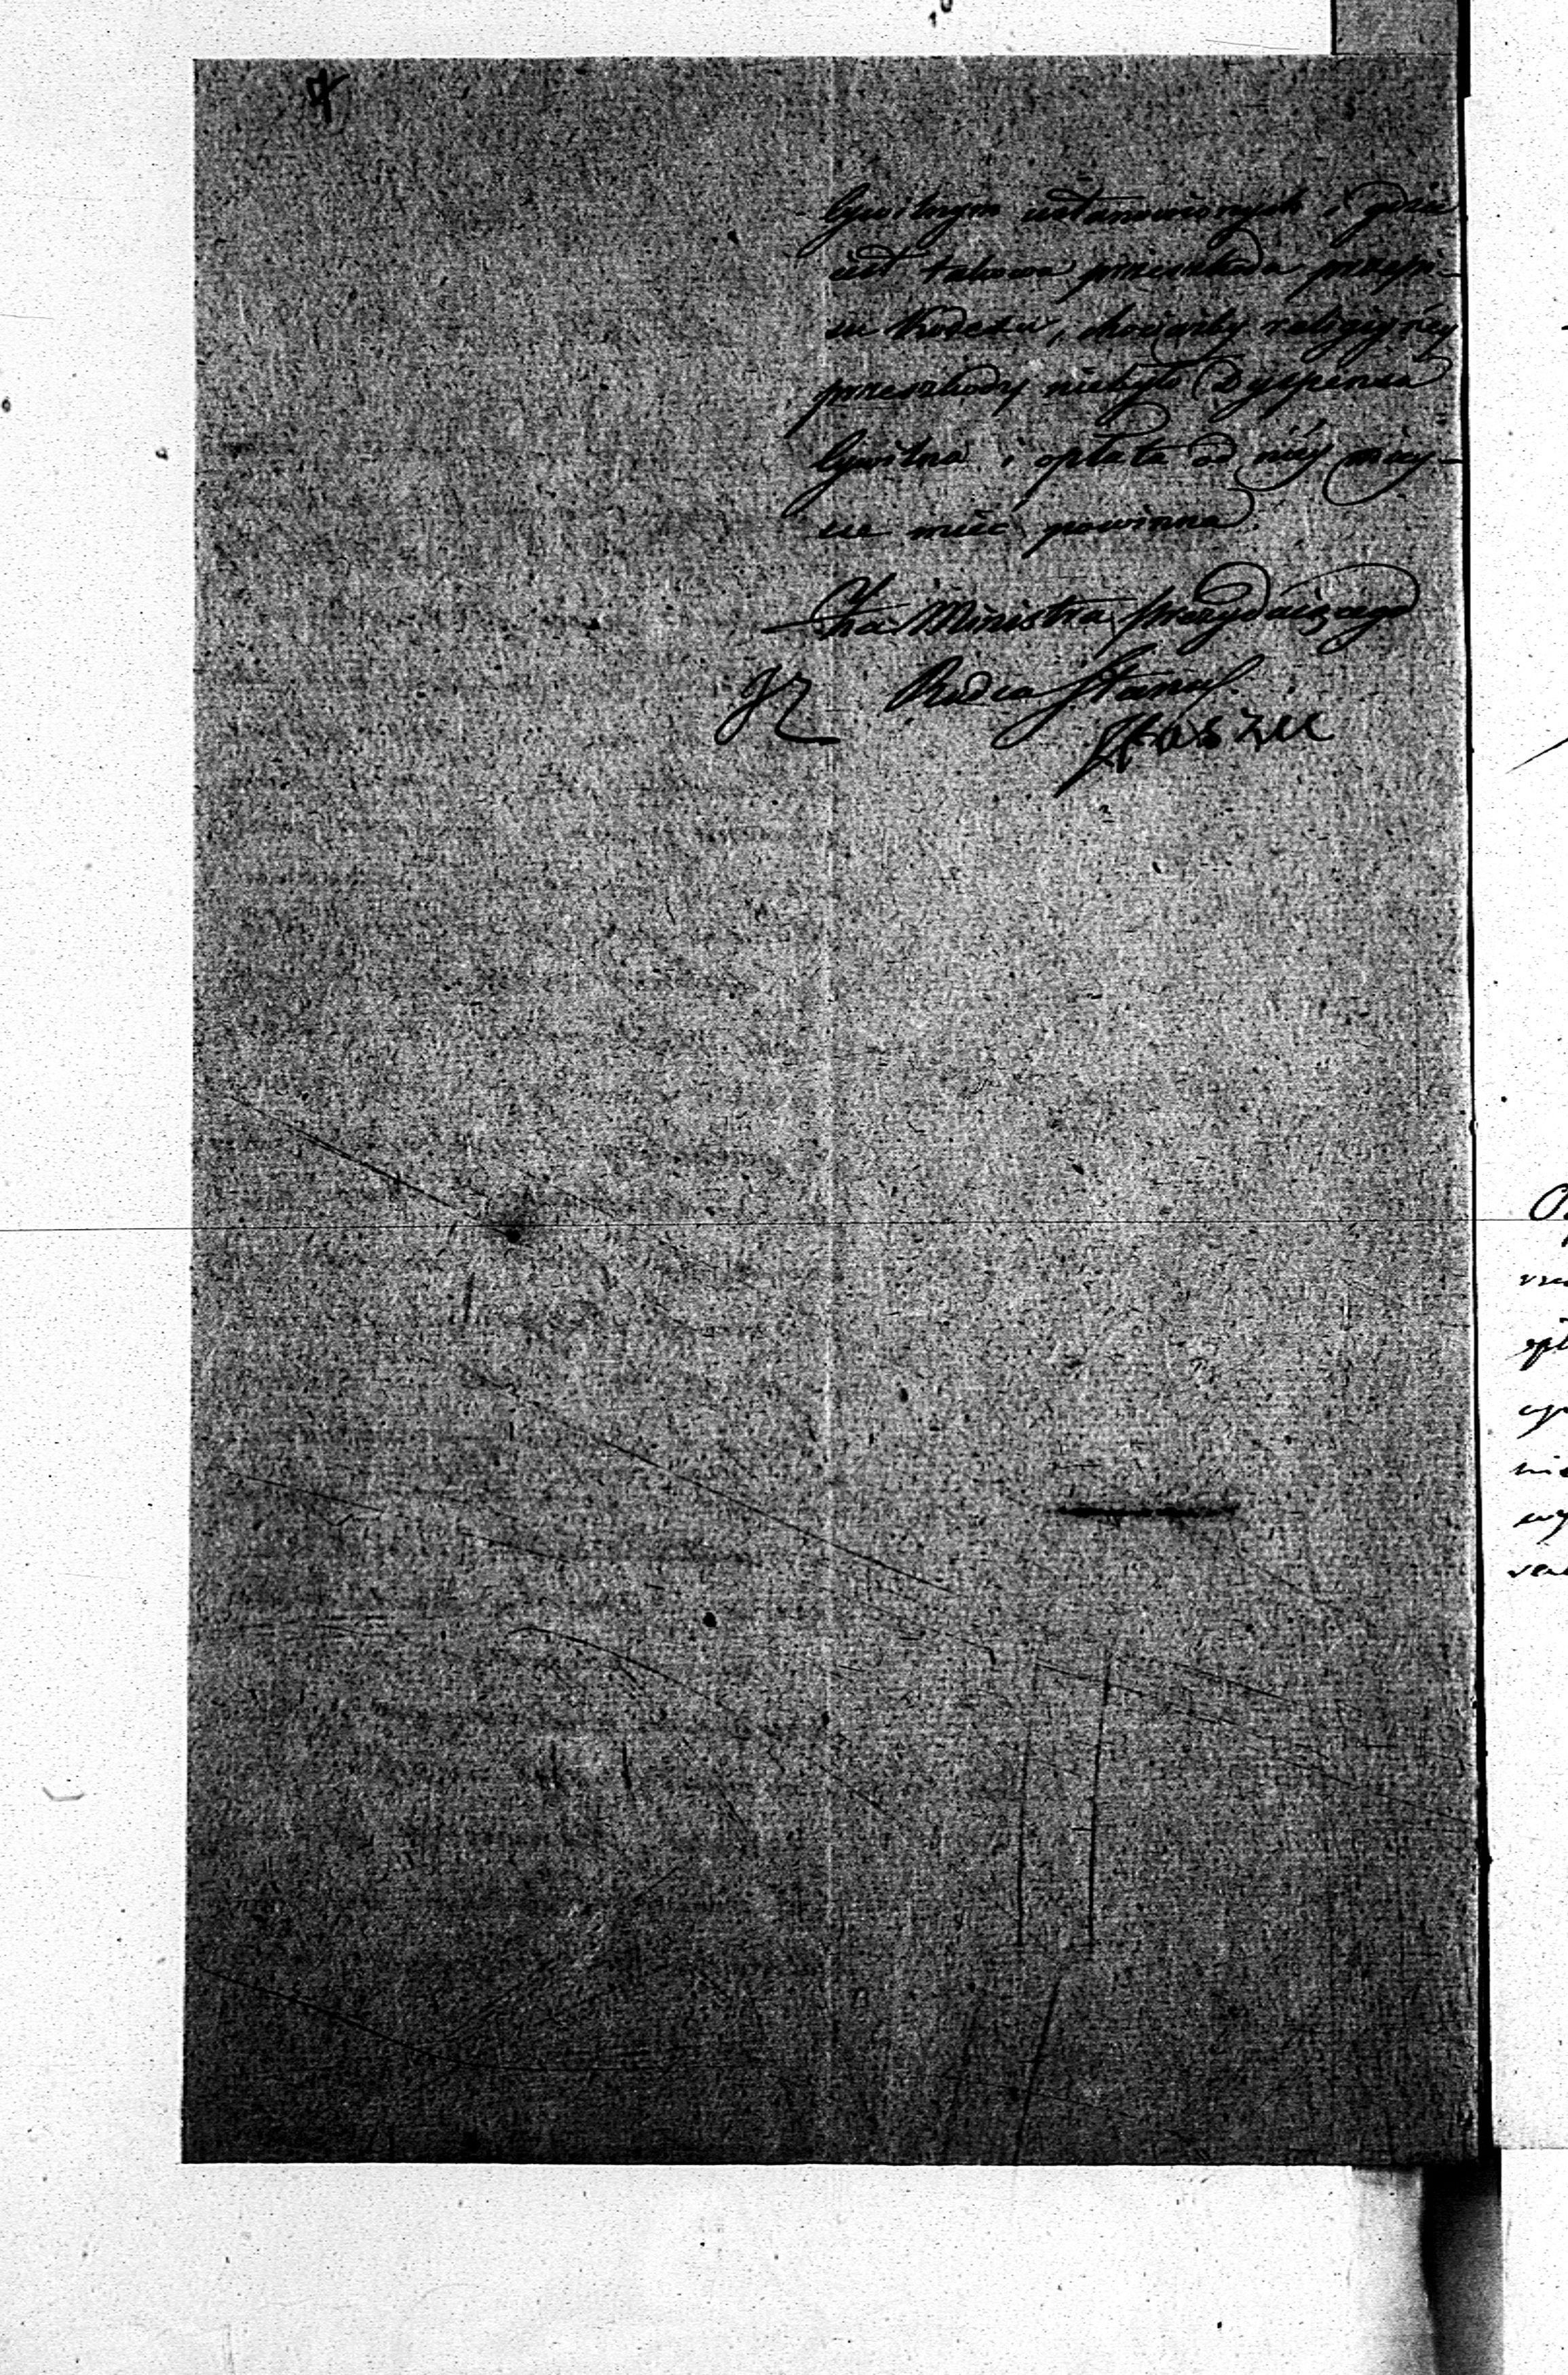 4
Cywilnym ustanowionych i gdzie
iest takowa przeszkoda przepi-
su Kodexu, chociażby religyiney
przeszkody niebyło Dyspensa
Cywilna i opłata od niéy miey-
sce mieć powinna.
Za Ministra Prezyduiącego
Radca Stanu
Staszic